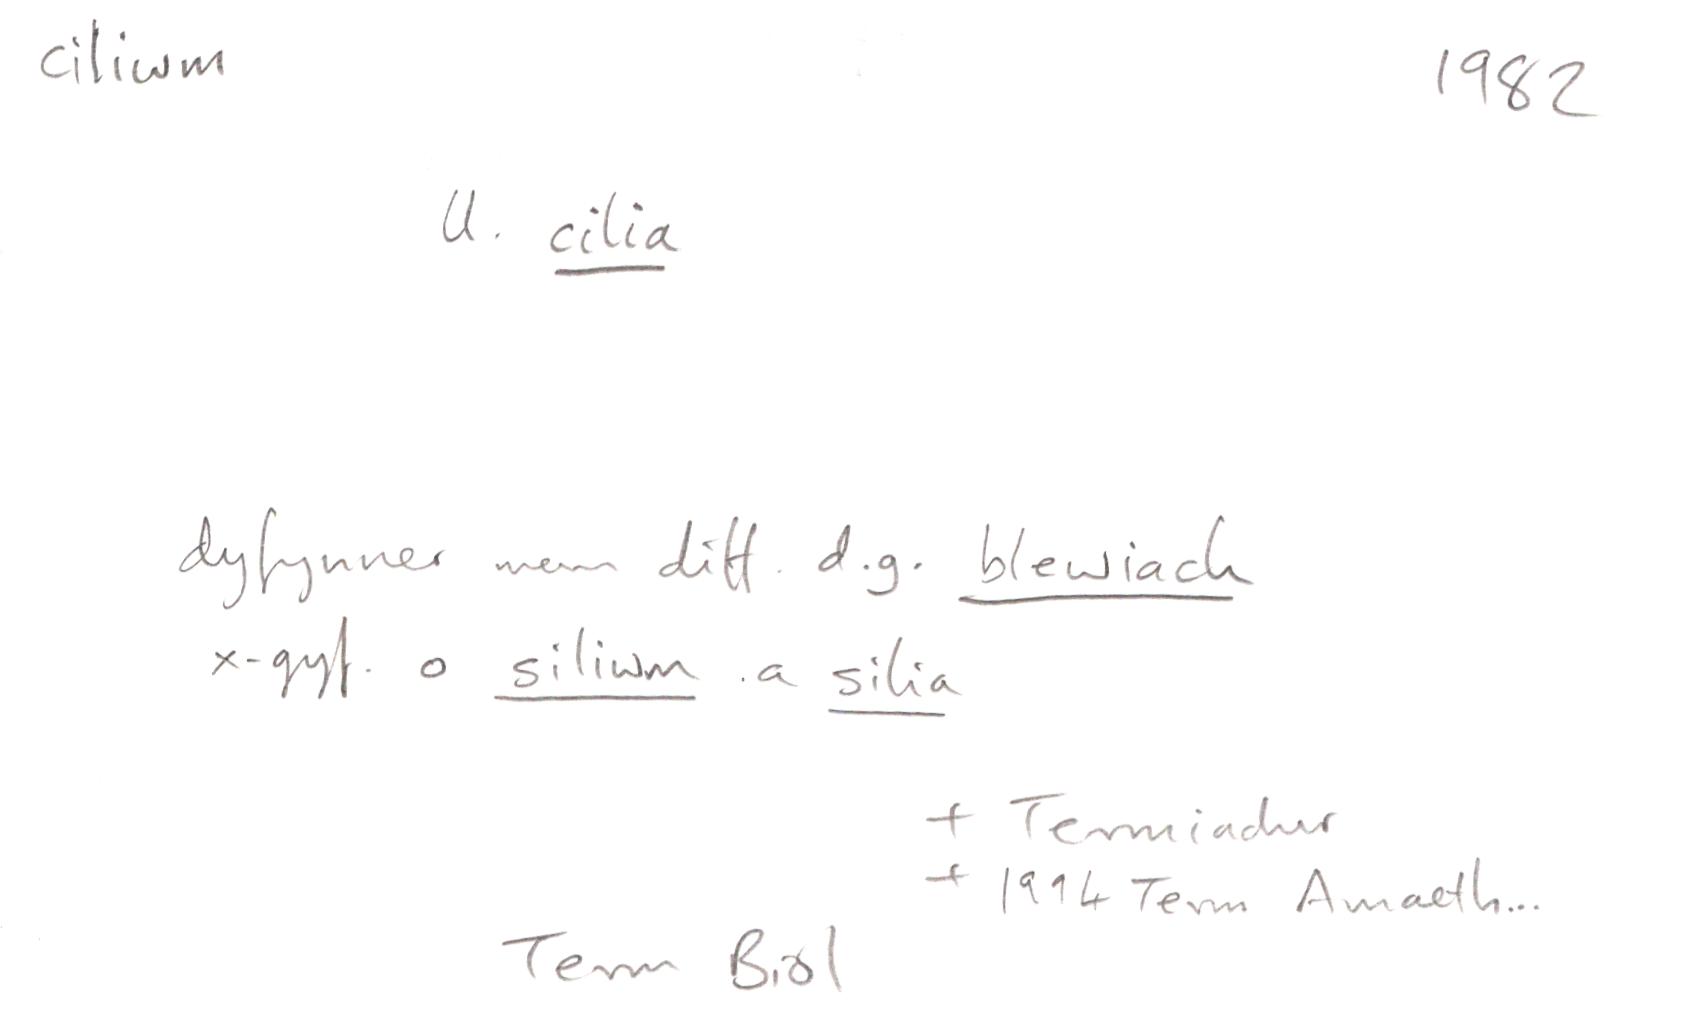 ciliwm 1982
ll. cilia
dyfynner mewn diff. d.g. blewiach
x-gyf. o siliwm a silia
+ Termiadur
+ 1994 Term Amaeth...
Term Biol